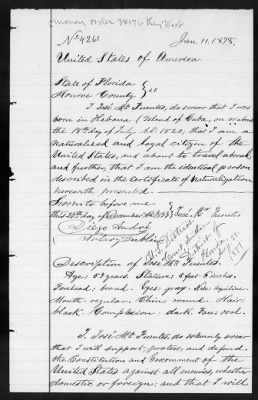 money order 38176 Key West
No 4261
Jan. 11. 1878,
United States of America
State of Florida
Monroe County } ss
I José Ma Fuentes, do swear that I was
born in Habana, Island of Cuba, on or about
the 18th day of July AD 1820; that I am a
naturalized and loyal citizen of the
United States, and about to travel abroad,
and further, that I am the identical person
described in the Certificate of Naturalization
herewith presented.
Sworn to before me
this day of December José Ma Fuentes
Notary Public
District
Florida
1877
Description of José Ma Fuentes.
Age: 57 years Stature: 5 feet inches.
Forehead: broad. Eyes: gray. Nose: aquiline
Mouth: regular. Chin: round. Hair:
black. Complexion: dark. Face: oval.
I, José Ma Fuentes, do solemnly swear
that I will support, protect, and defend
the Constitution and Government of the
United States against all enemies, whether
domestic or foreign; and that I will